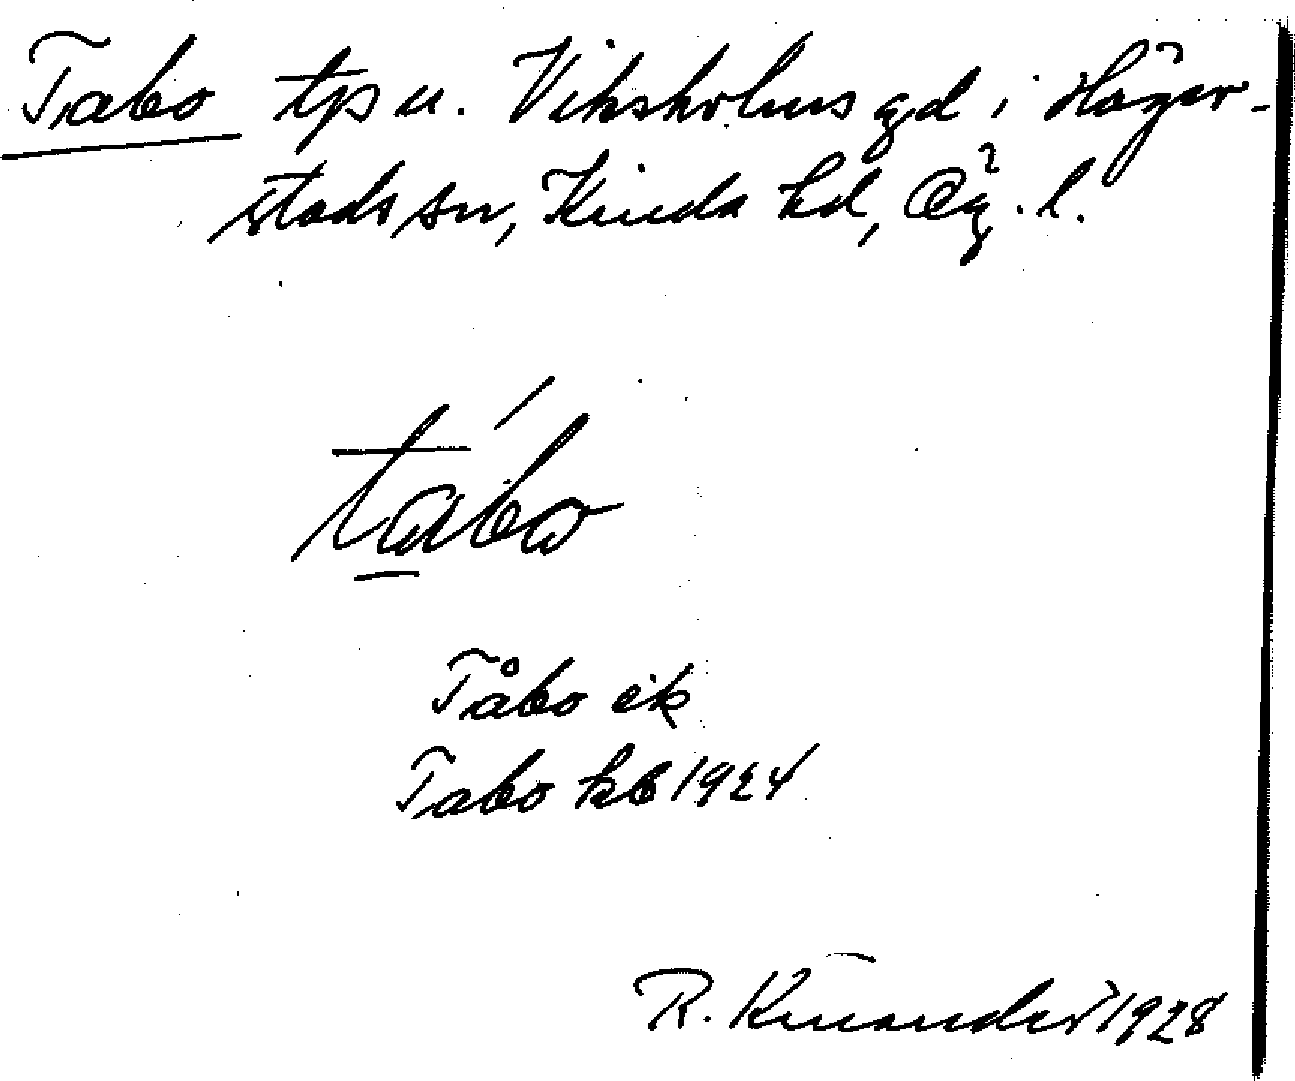 Tabo tp u. Viksholms gd i Häger-
stads sn, Kinda hd, Ög. l.
tábo
Tåbo ek
Tabo kb 1924
R. Kinander 1928